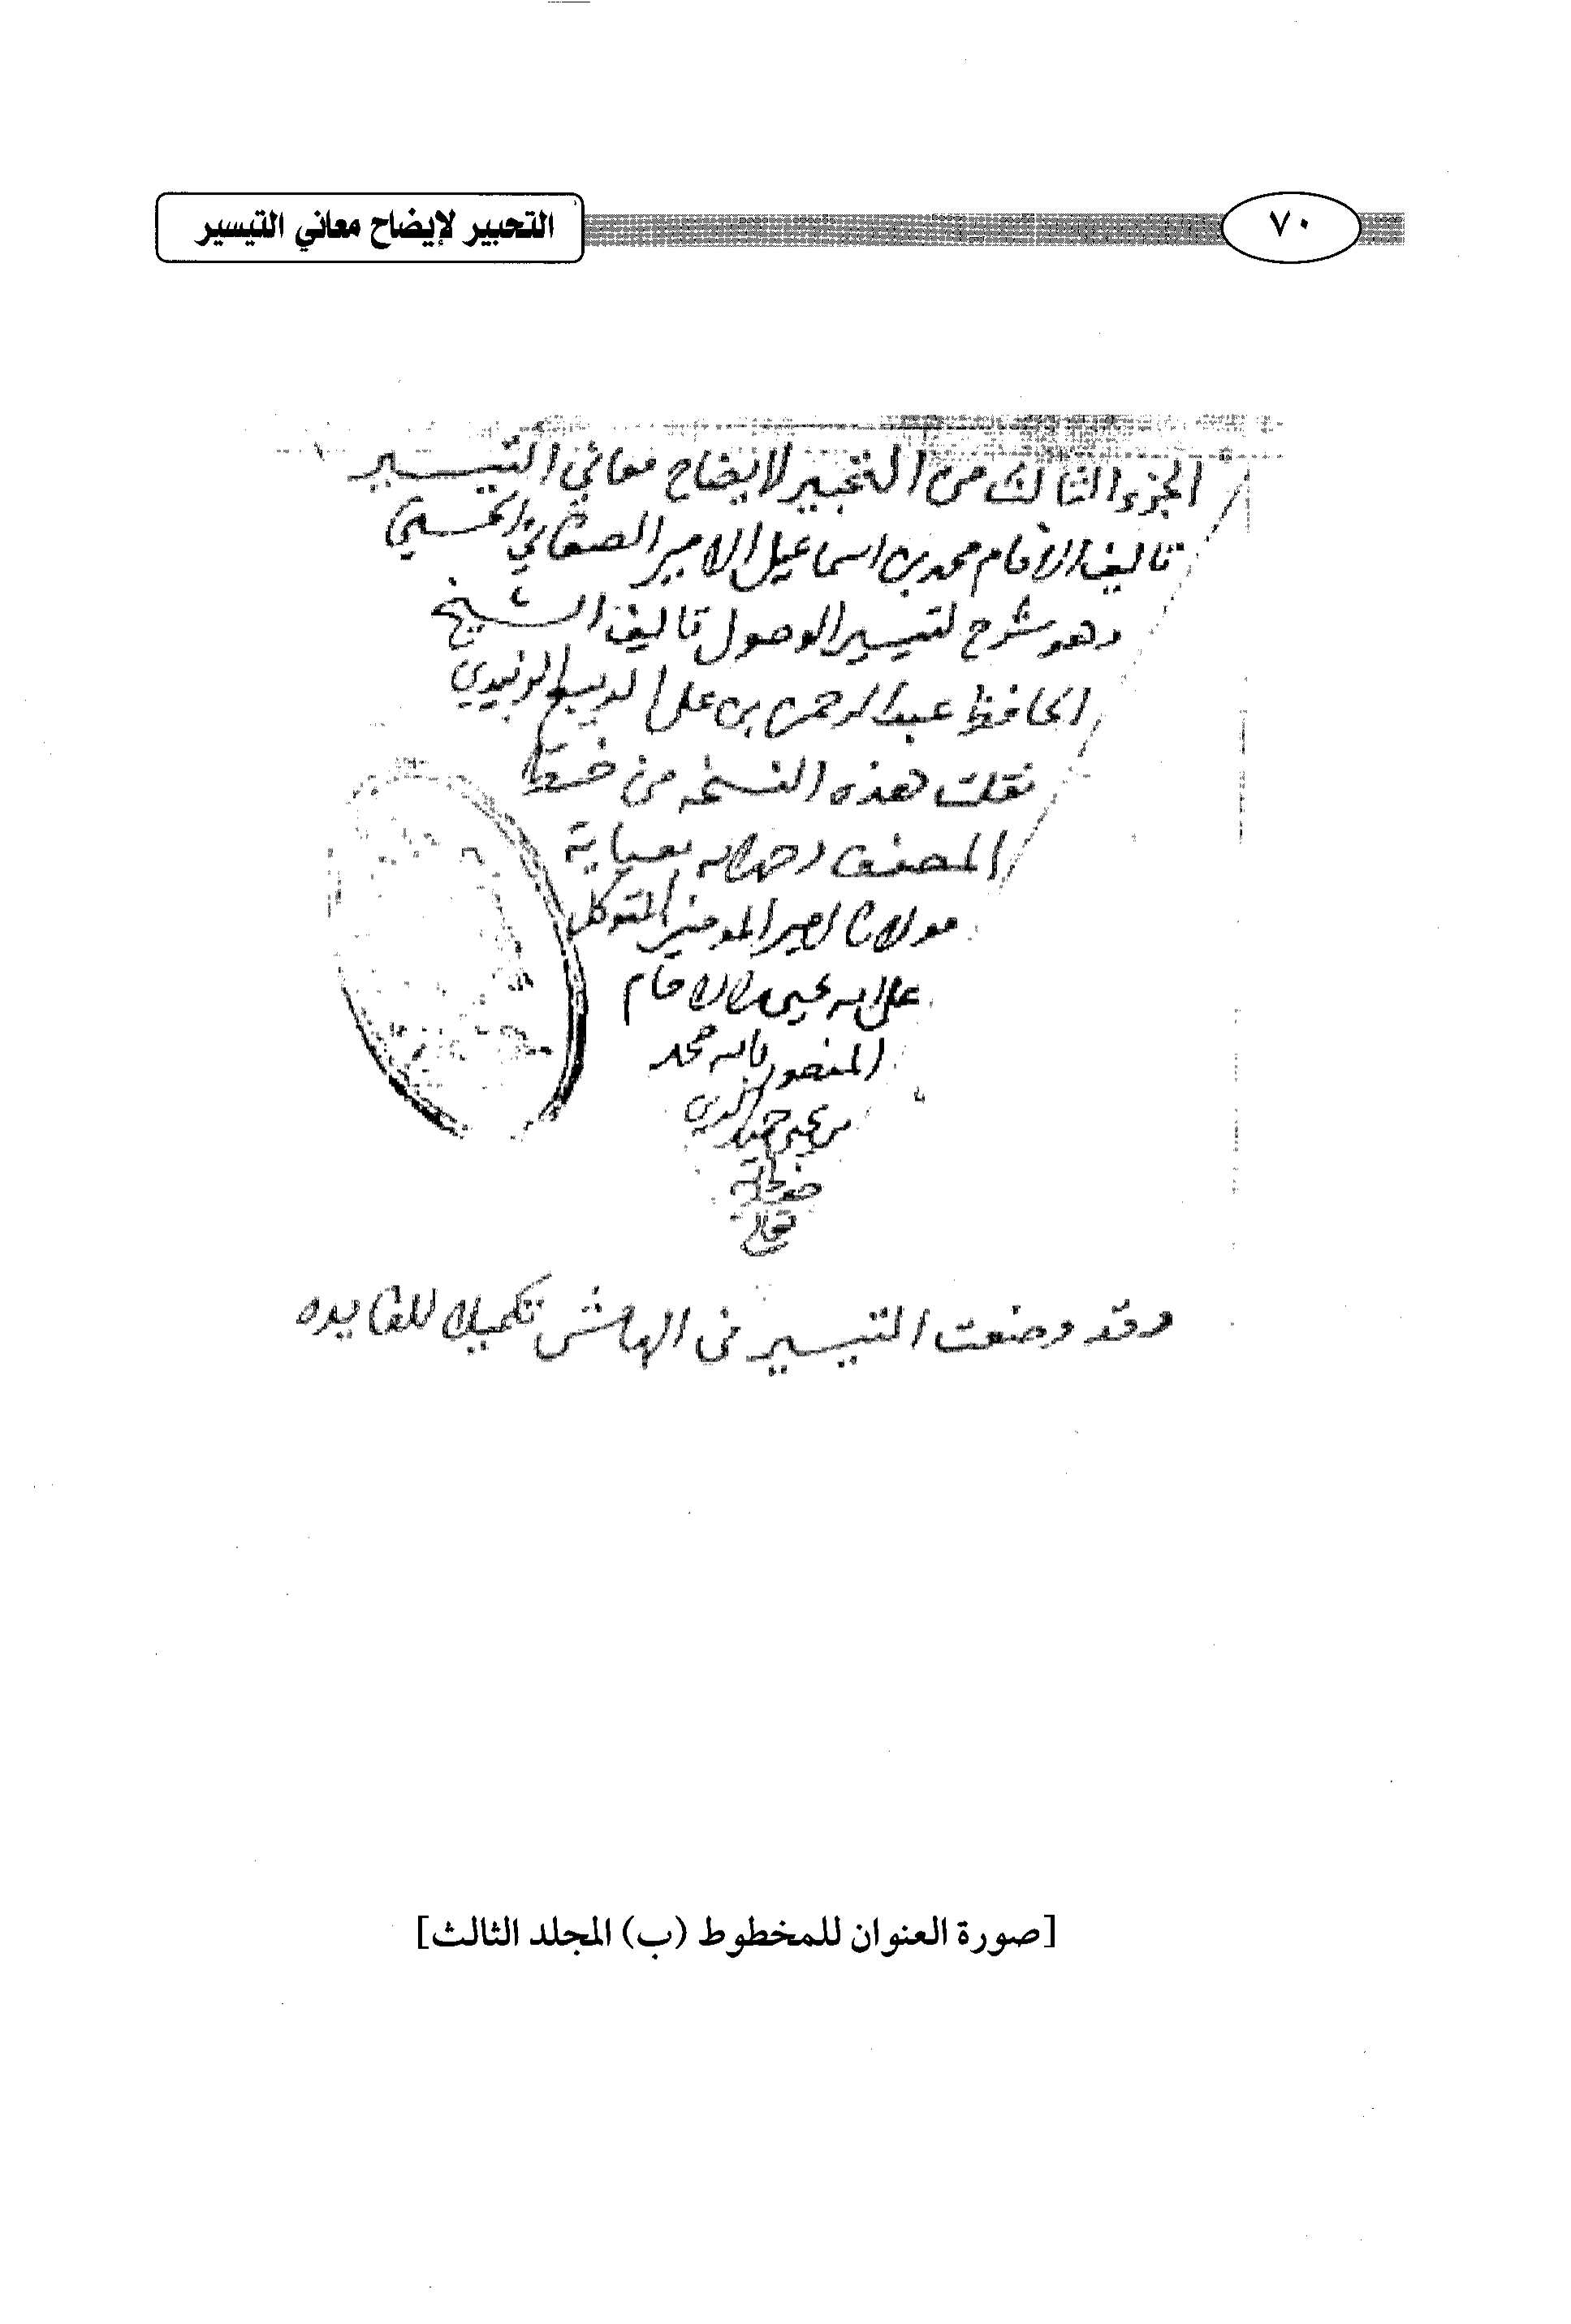 ٧٠
التحبير لإيضاح معاني التيسير
الجزء الثالث من التحبير لايضاح معاني التيسير
تاليف الامام محمد بن اسماعيل الامير الصنعاني الحسني
وهو شرح لتيسير الوصول تاليف الشيخ
الحافظ عبد الرحمن بن علي الديبع الزبيدي
نقلت هذه النسخه من خط
المصنف رحمه الله بعناية
مولانا امير المومنين المتوكل
على الله يحيى بن الامام
المنصور بالله محمد
بن يحيى حميد الدين
حفظه الله
تعالى
وقد وضعت التيسير في الهامش تكميلا للفايده
[صورة العنوان للمخطوط (ب) المجلد الثالث]